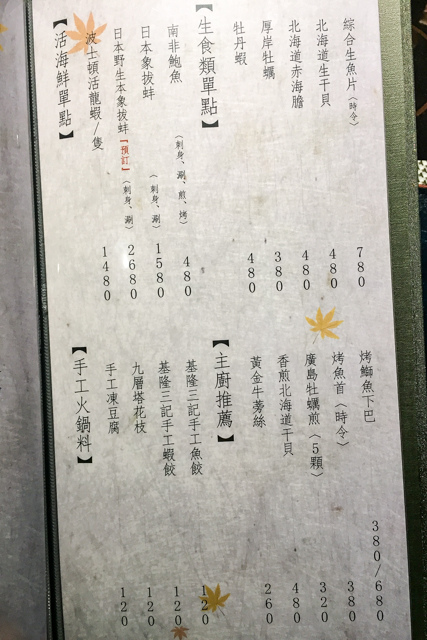 綜合生魚片（時令） 780
北海道生干貝 480
北海道赤海膽 480
厚岸牡蠣 380
牡丹蝦 480
【生食類單點】
南非鮑魚（刺身、涮、煎、烤） 480
日本象拔蚌（刺身、涮） 1580
日本野生本象拔蚌【預訂】（刺身、涮） 2680
波士頓活龍蝦/隻 1480
【活海鮮單點】
烤鰤魚下巴 380/680
烤魚首（時令） 380
廣島牡蠣煎（5顆） 320
香煎北海道干貝 480
黃金牛蒡絲 260
【主廚推薦】
基隆三記手工魚餃 120
基隆三記手工蝦餃 120
九層塔花枝 120
手工凍豆腐 120
【手工火鍋料】